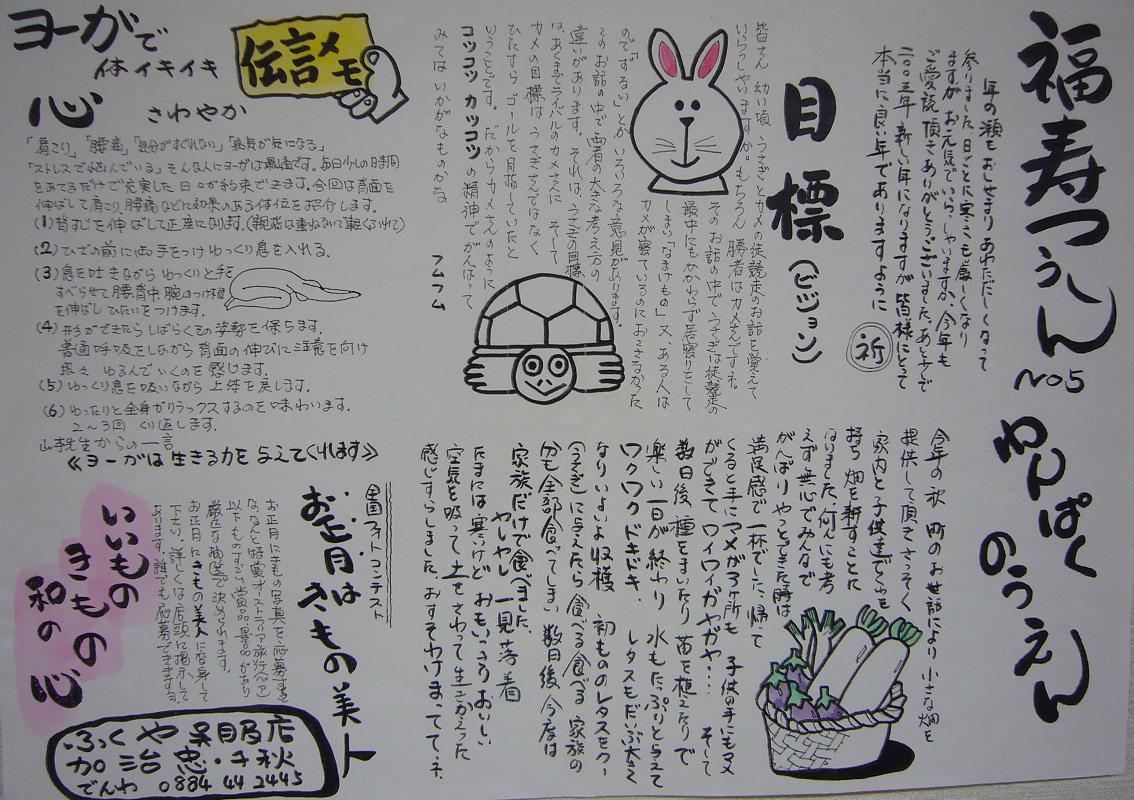 福寿つうしん
No5
年の瀬もおしせまりあわただしくなって
参りました。日ごとに寒さも厳しくなり
ますがお元気でいらっしゃいますか。今年も
ご愛読頂きありがとうございました。あと少しで
二〇〇三年 新しい年になりますが皆様にとって
本当に良い年でありますように
祈
目標
(ビジョン)
皆さん 幼い頃 うさぎとカメの徒競走のお話を覚えて
いらっしゃいますか。もちろん 勝者はカメさんですネ。
そのお話の中でうさぎは徒競走の
最中にもかかわらず居寝りをして
しまい「なまけもの」又、ある人は
カメが寝ているのにおこさなかった
ので「ずるい」とかいろいろな意見があります。
このお話の中で両者の大きな考え方の
違いがあります。それは、うさぎの目標
は、あくまでライバルのカメさんに そして
カメの目標は うさぎさんではなく
ひたすらゴールを目指していたと
いうことです。だからカメさんのように
コツコツ カッコツの精神でがんばって
みては いかがなものかな
フムフム
ヨーガで
体イキイキ
心 さわやか
伝言メモ
「肩こり」「腰痛」「気分がすぐれない」「病気が気になる」
「ストレスで悩んでいる」そんな人にヨーガは最適です。毎日少しの時間
をあてるだけで充実した日々が約束できます。今回は背面を
伸ばして肩こり、腰痛などに効果のある体位を紹介します。
(1) 背すじを伸ばして正座になります。(親指は重ねないで軽くふれて)
(2) ひざの前に両手をつけゆっくり息を入れる。
(3) 息を吐きながらゆっくりと手を
すべらせて腰、背中、腕のつけ根
を伸ばしひたいをつけます。
(4) 形ができたらしばらくその姿勢を保ちます。
普通呼吸をしながら背面の伸びに注意を向け
段々 ゆるんでいくのを感じます。
(5) ゆっくり息を吸いながら上体を戻します。
(6) ゆったりと全身がリラックスするのを味わいます。
2〜3回 くり返します。
先生からの一言
《ヨーガは生きる力を与えてくれます》
わんぱく
のうえん
今年の秋 町のお世話により 小さな畑を
提供して頂き さっそく
家内と子供達でくわを
持ち 畑を耕すことに
なりました。何にも考
えず無心でみんなで
がんばりやってできた時は
満足感で一杯でした。帰って
くると手にマメが3ヶ所も 子供の手にもマメ
ができて ワイワイガヤガヤ… そして
数日後 種をまいたり 苗を植えたりで
楽しい一日が終わり 水もたっぷりと与えて
ワクワクドキドキ レタスもだいぶ大きく
なりいよいよ収穫 初もののレタスをクー
(うさぎ)に与えたら 食べる食べる 家族の
分も全部食べてしまい 数日後 今度は
家族だけで食べました。
やれやれ 一見落着
たまには寒いけど おもいっきりおいしい
空気を吸って 土をさわって生きかえった
感じすらしました。おすそわけまってってネ。
全国フォトコンテスト
お正月は
きもの美人
お正月にきもの写真を応募すると
な、なんと特賞オーストラリア旅行(ペア)
以下ものすごい賞品、景品があり
厳正な抽選で決められます。
お正月にきもの美人に変身して
下さい。詳しくは店頭に掲示して
あります。誰でも応募できますョ。
いいもの
きものの
和の心
ふくや呉服店
加治 忠・千秋
でんわ 0884 44 2445